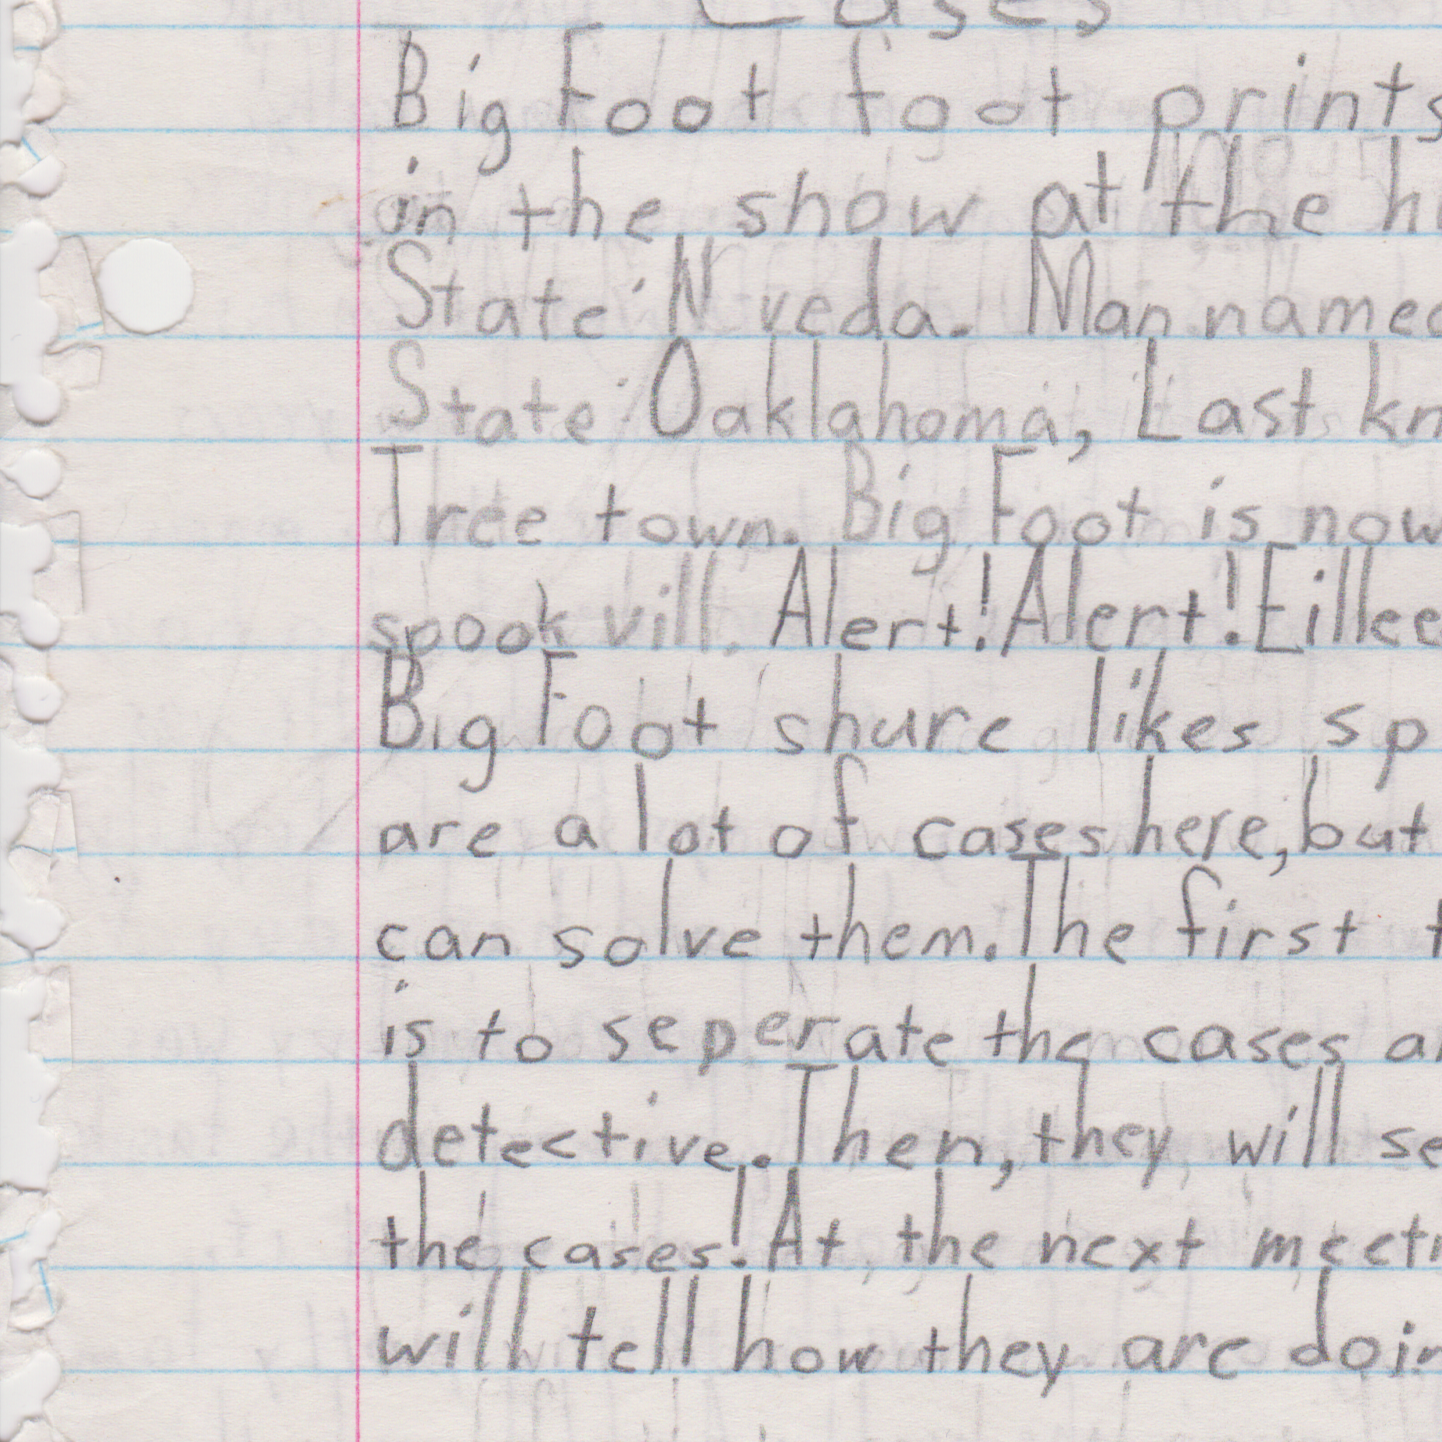 Cases
Big Foot foot prints
in the show at the
State: N veda. Man named
State: Oaklahoma, Last kn
Tree town. Big Foot is now
spook vill. Alert! Alert! Eillee
Big Foot shure likes sp
are a lot of cases here, but
can solve them. The first t
is to seperate the cases a
detective. Then, they will se
the cases! At the next meeti
will tell how they are doin